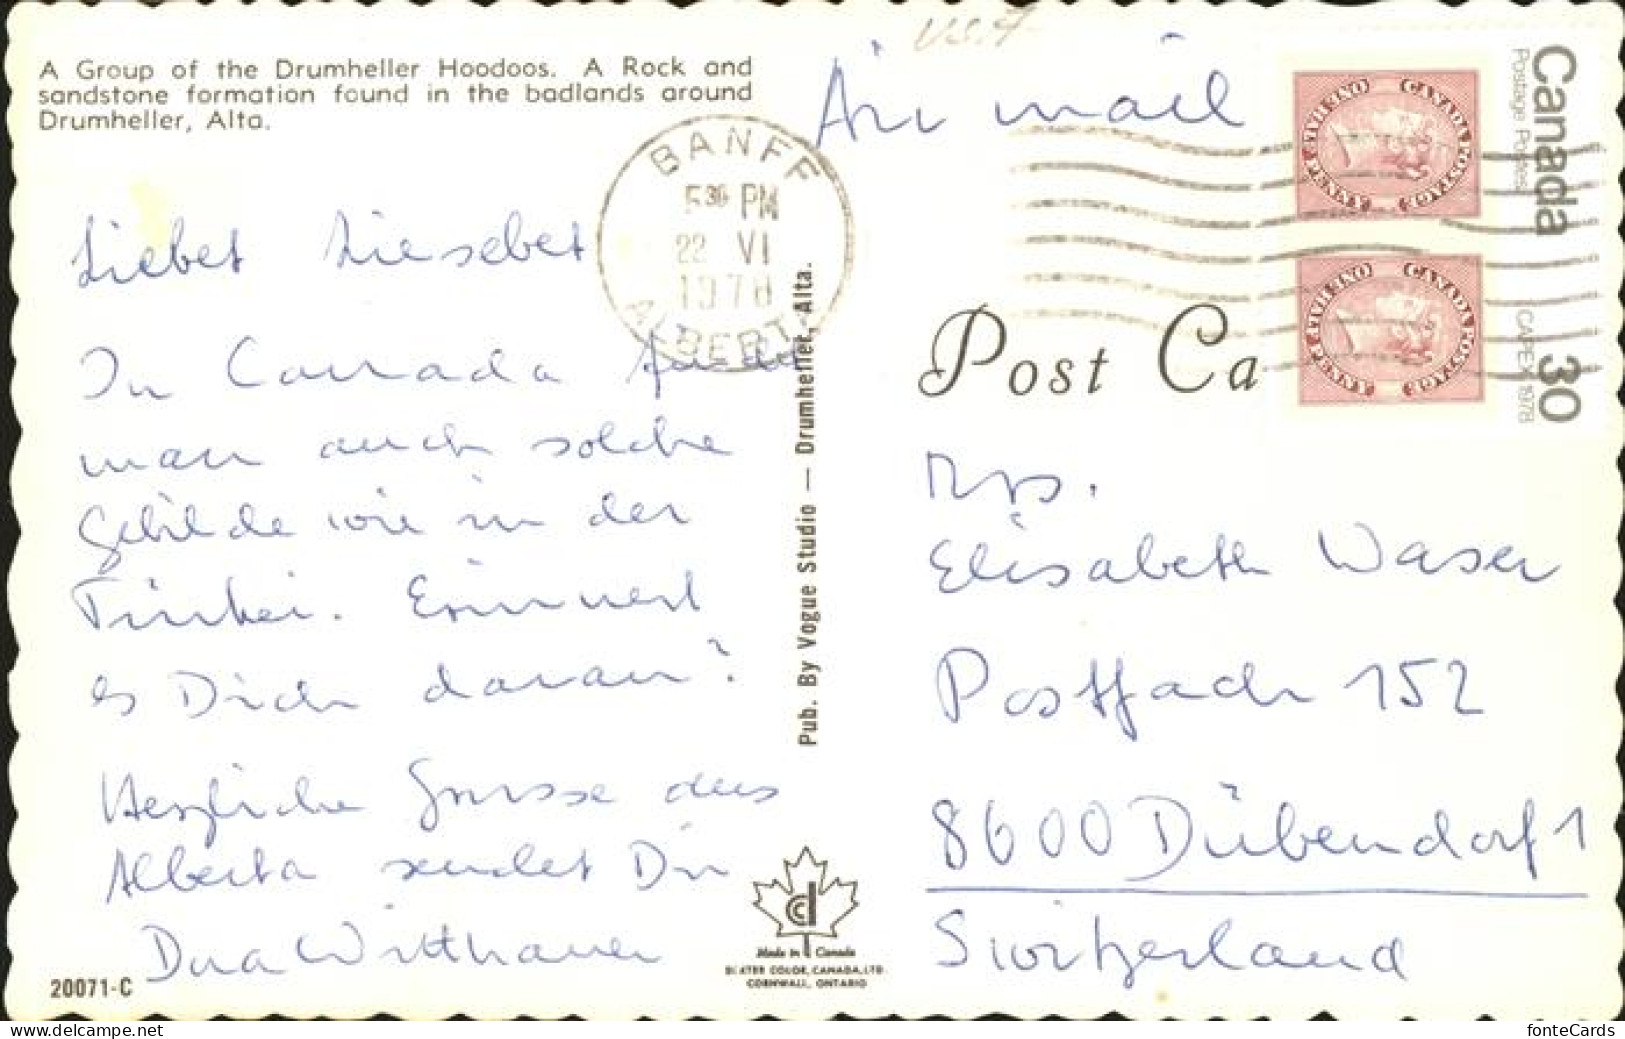 A Group of the Drumheller Hoodoos. A Rock and
sandstone formation found in the badlands around
Drumheller, Alta.
Air mail
BANFF
5 30 PM
22 VI
1978
ALBERTA
Canada
Postage Postes
30
CAPEX 1978
CANADA POSTAGE
ONE HALF PENNY
CANADA POSTAGE
ONE HALF PENNY
Liebes Liesebet
In Canada findet
man auch solche
Gebilde wie in der
Türkei. Erinnerst
es Dich daran?
Herzliche Grüsse aus
Alberta sendet Dir
Witthauer
Pub. By Vogue Studio — Drumheller, Alta.
Post Ca
Mrs.
Elisabeth Waser
Postfach 152
8600 Dübendorf 1
Switzerland
Made in Canada
DEXTER COLOR, CANADA, LTD.
CORNWALL, ONTARIO
20071-C
www.delcampe.net
fonteCards